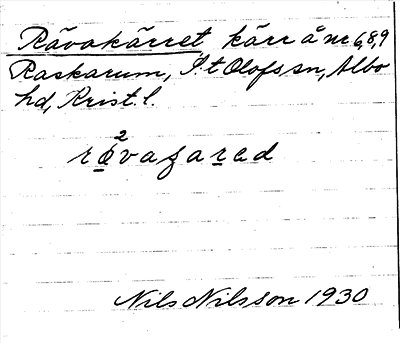 Rävakärret, kärr å nr 6,8,9
Raskarum, S:t Olofs sn, Albo
hd, Krist. l.
Nils Nilsson 1930